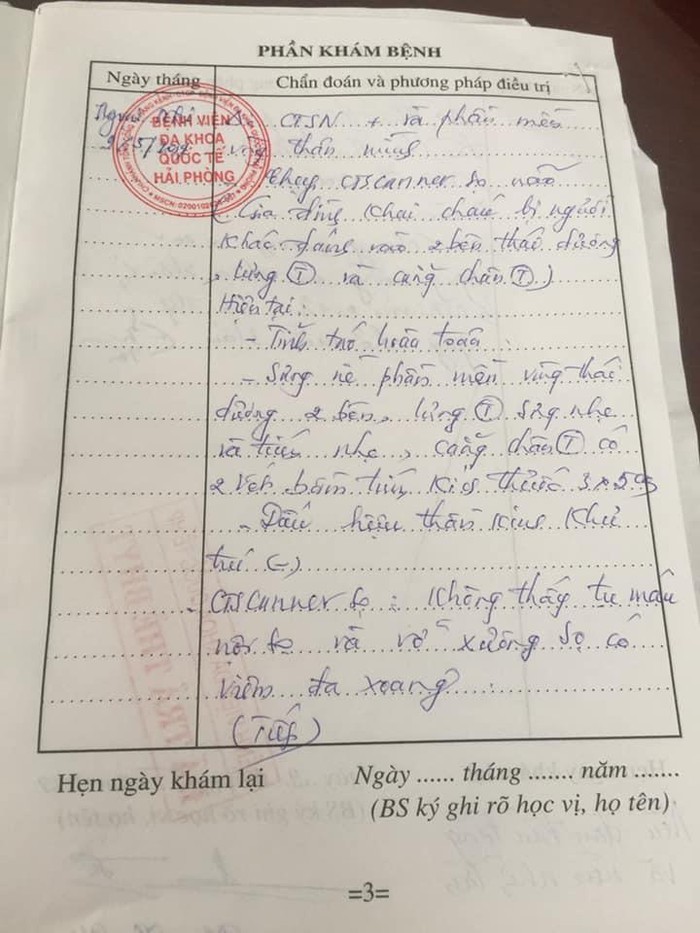 PHẦN KHÁM BỆNH
Ngày tháng
Chẩn đoán và phương pháp điều trị
BỆNH VIỆN
ĐA KHOA
QUỐC TẾ
HẢI PHÒNG
CTSN + và phần mềm
thắt lưng
CTScanner sọ não
(Gia đình khai cháu bị người
khác đánh vào 2 bên thái dương
, lưng (T) và cẳng chân (T))
Hiện tại:
- Tỉnh táo hoàn toàn
- Sưng nề phần mềm vùng thái
dương 2 bên, lưng (T) sưng nhẹ
và tím nhẹ, cẳng chân (T) có
2 vết bầm tím kích thước 3x5cm
- Dấu hiệu thần kinh khu
trú (-)
- CTScanner sọ: Không thấy tụ máu
nội sọ và vỡ xương sọ có
viêm đa xoang
(Tiếp)
Hẹn ngày khám lại
Ngày ...... tháng ....... năm .......
(BS ký ghi rõ học vị, họ tên)
=3=